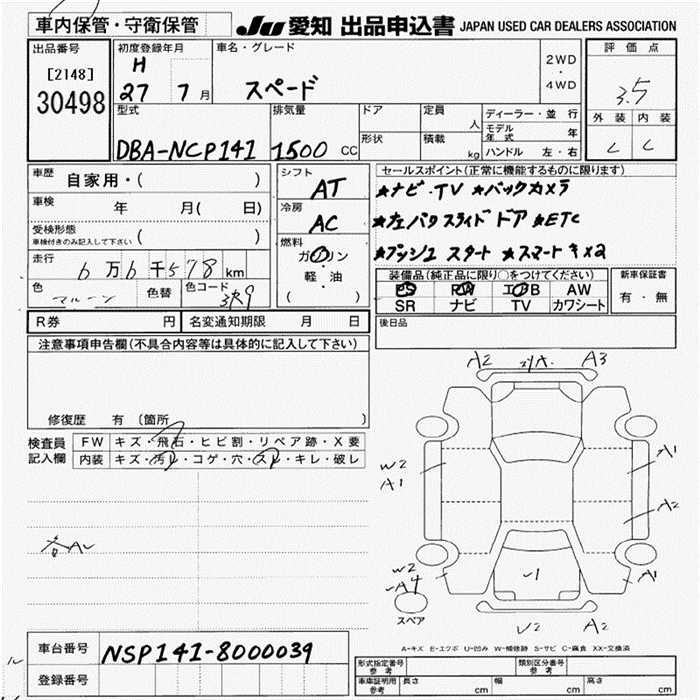 車内保管・守衛保管
JU 愛知 出品申込書 JAPAN USED CAR DEALERS ASSOCIATION
出品番号
[2148]
30498
初度登録年月
H
27 7 月
車名・グレード
スペード
2WD
・
4WD
評価点
3.5
外装 内装
C C
型式
DBA-NCP141
排気量
1500 CC
ドア
形状
定員
人
積載
kg
ディーラー・並行
モデル年式 年
ハンドル 左・右
車歴 自家用・( )
車検 年 月( 日)
受検形態
車検付きのみ記入して下さい ( )
走行 6万6千578 km
色 マルーン 色替 色コード 3R9
シフト
AT
冷房
AC
燃料
ガソリン
軽・油
( )
セールスポイント(正常に機能するものに限ります)
★ナビ・TV ★バックカメラ
★左パワスライドドア ★ETC
★プッシュスタート ★スマートキx2
装備品(純正品に限り○をつけてください)
PS PW エアB AW
SR ナビ TV カワシート
新車保証書
有・無
R券 円 名変通知期限 月 日
後日品
注意事項申告欄(不具合内容等は具体的に記入して下さい)
修復歴 有 (箇所 )
検査員記入欄
FW キズ・飛石・ヒビ割・リペア跡・X要
内装 キズ・汚レ・コゲ・穴・スレ・キレ・破レ
A2
A3
W2
A1
A1
A2
W2
A4
スペア
-1
A1
V2 A2
A-キズ E-エクボ U-凹み W-補修跡 S-サビ C-腐食 XX-交換済
車台番号 NSP141-8000039
登録番号
形式指定番号 参考
類別区分番号 参考
車庫証明用 参考 長さ cm 幅 cm 高さ cm